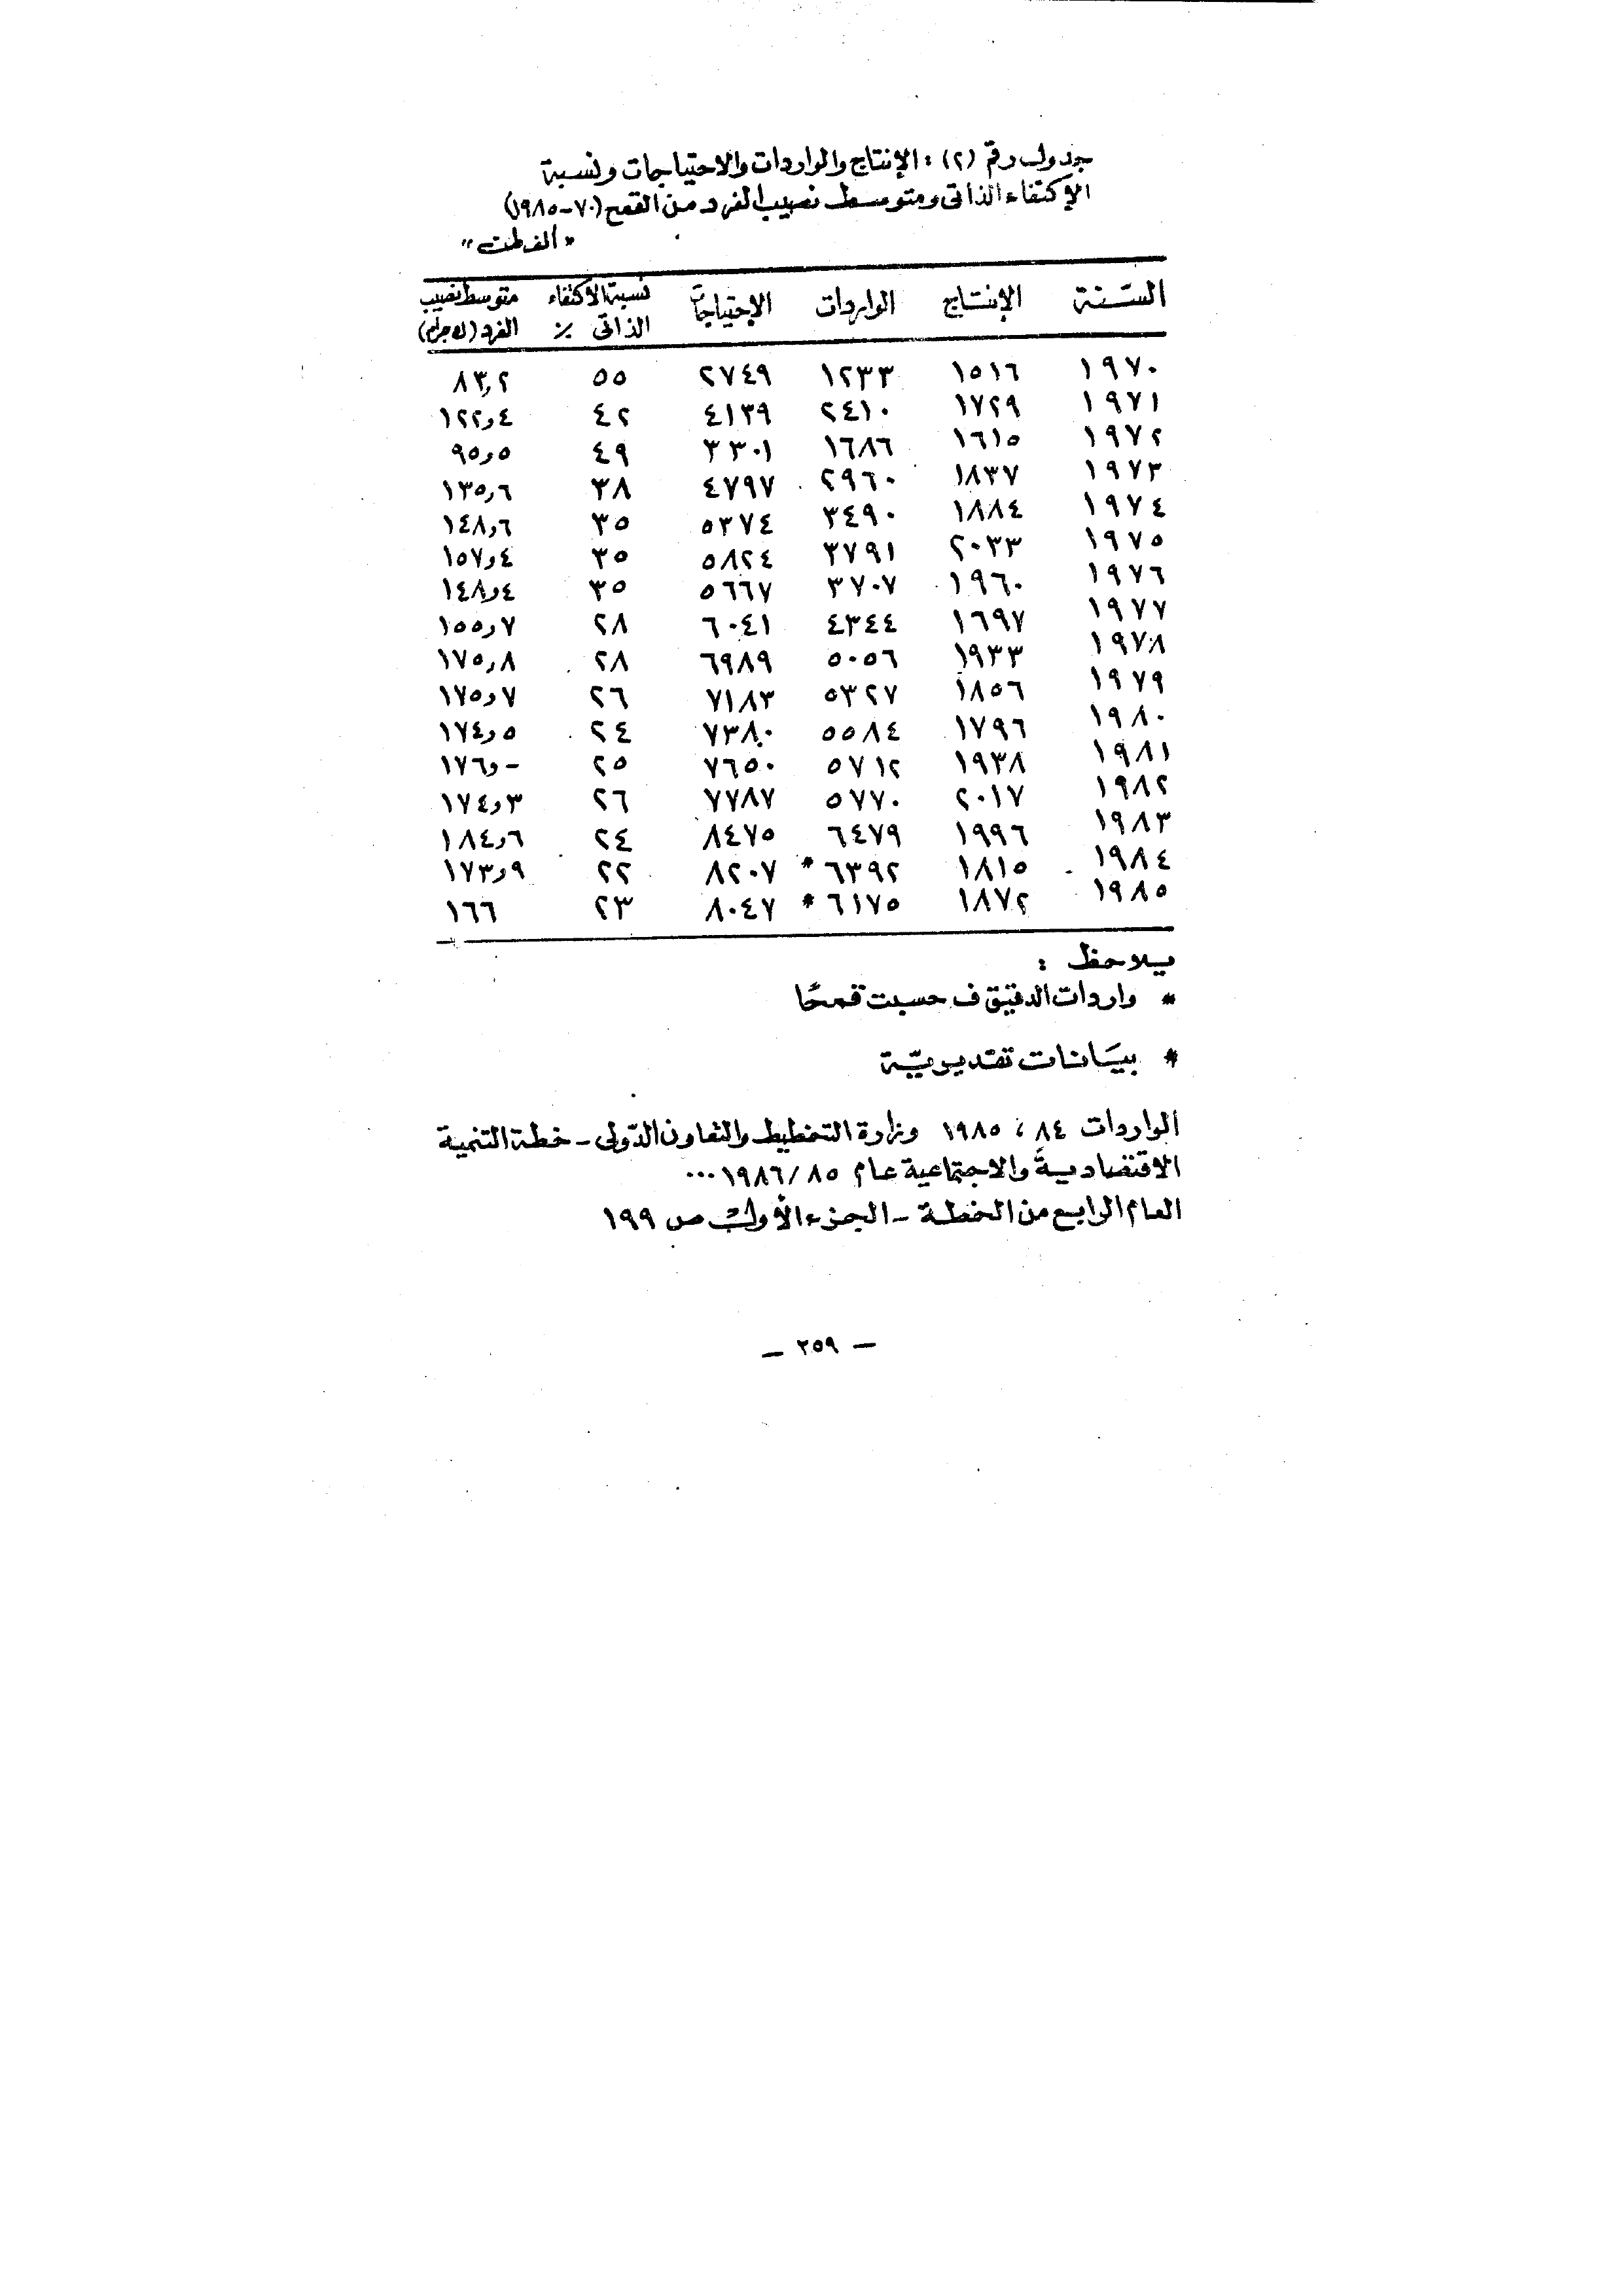 جدول رقم (٢) : الإنتاج والواردات والاحتياجات ونسبة
الإكتفاء الذاتى ومتوسط نصيب الفرد من القمح (٧٠-١٩٨٥)
"ألف طن"
السنة الإنتاج الواردات الاحتياجات نسبة الاكتفاء الذاتى ٪ متوسط نصيب الفرد (ك جرام)
١٩٧٠ ١٥١٦ ١٢٣٣ ٢٧٤٩ ٥٥ ٨٣,٢
١٩٧١ ١٧٢٩ ٢٤١٠ ٤١٣٩ ٤٢ ١٢٢,٤
١٩٧٢ ١٦١٥ ١٦٨٦ ٣٣٠١ ٤٩ ٩٥,٥
١٩٧٣ ١٨٣٧ ٢٩٦٠ ٤٧٩٧ ٣٨ ١٣٥,٦
١٩٧٤ ١٨٨٤ ٣٤٩٠ ٥٣٧٤ ٣٥ ١٤٨,٦
١٩٧٥ ٢٠٣٣ ٣٧٩١ ٥٨٢٤ ٣٥ ١٥٧,٤
١٩٧٦ ١٩٦٠ ٣٧٠٧ ٥٦٦٧ ٣٥ ١٤٨,٤
١٩٧٧ ١٦٩٧ ٤٣٤٤ ٦٠٤١ ٢٨ ١٥٥,٧
١٩٧٨ ١٩٣٣ ٥٠٥٦ ٦٩٨٩ ٢٨ ١٧٥,٨
١٩٧٩ ١٨٥٦ ٥٣٢٧ ٧١٨٣ ٢٦ ١٧٥,٧
١٩٨٠ ١٧٩٦ ٥٥٨٤ ٧٣٨٠ ٢٤ ١٧٤,٥
١٩٨١ ١٩٣٨ ٥٧١٢ ٧٦٥٠ ٢٥ ١٧٦,-
١٩٨٢ ٢٠١٧ ٥٧٧٠ ٧٧٨٧ ٢٦ ١٧٤,٣
١٩٨٣ ١٩٩٦ ٦٤٧٩ ٨٤٧٥ ٢٤ ١٨٤,٦
١٩٨٤ ١٨١٥ ٦٣٩٢* ٨٢٠٧ ٢٢ ١٧٣,٩
١٩٨٥ ١٨٧٢ ٦١٧٥* ٨٠٤٧ ٢٣ ١٦٦
يلاحظ :
* واردات الدقيق ف حسبت قمحًا
* بيَانات تقديريّة
الواردات ٨٤ ، ١٩٨٥ وزارة التخطيط والتعاون الدّولى - خطة التنمية
الاقتصادية والاجتماعية عام ١٩٨٦/٨٥...
العام الرابع من الخطة - الجزء الأول ص ١٩٩
— ٢٥٩ —